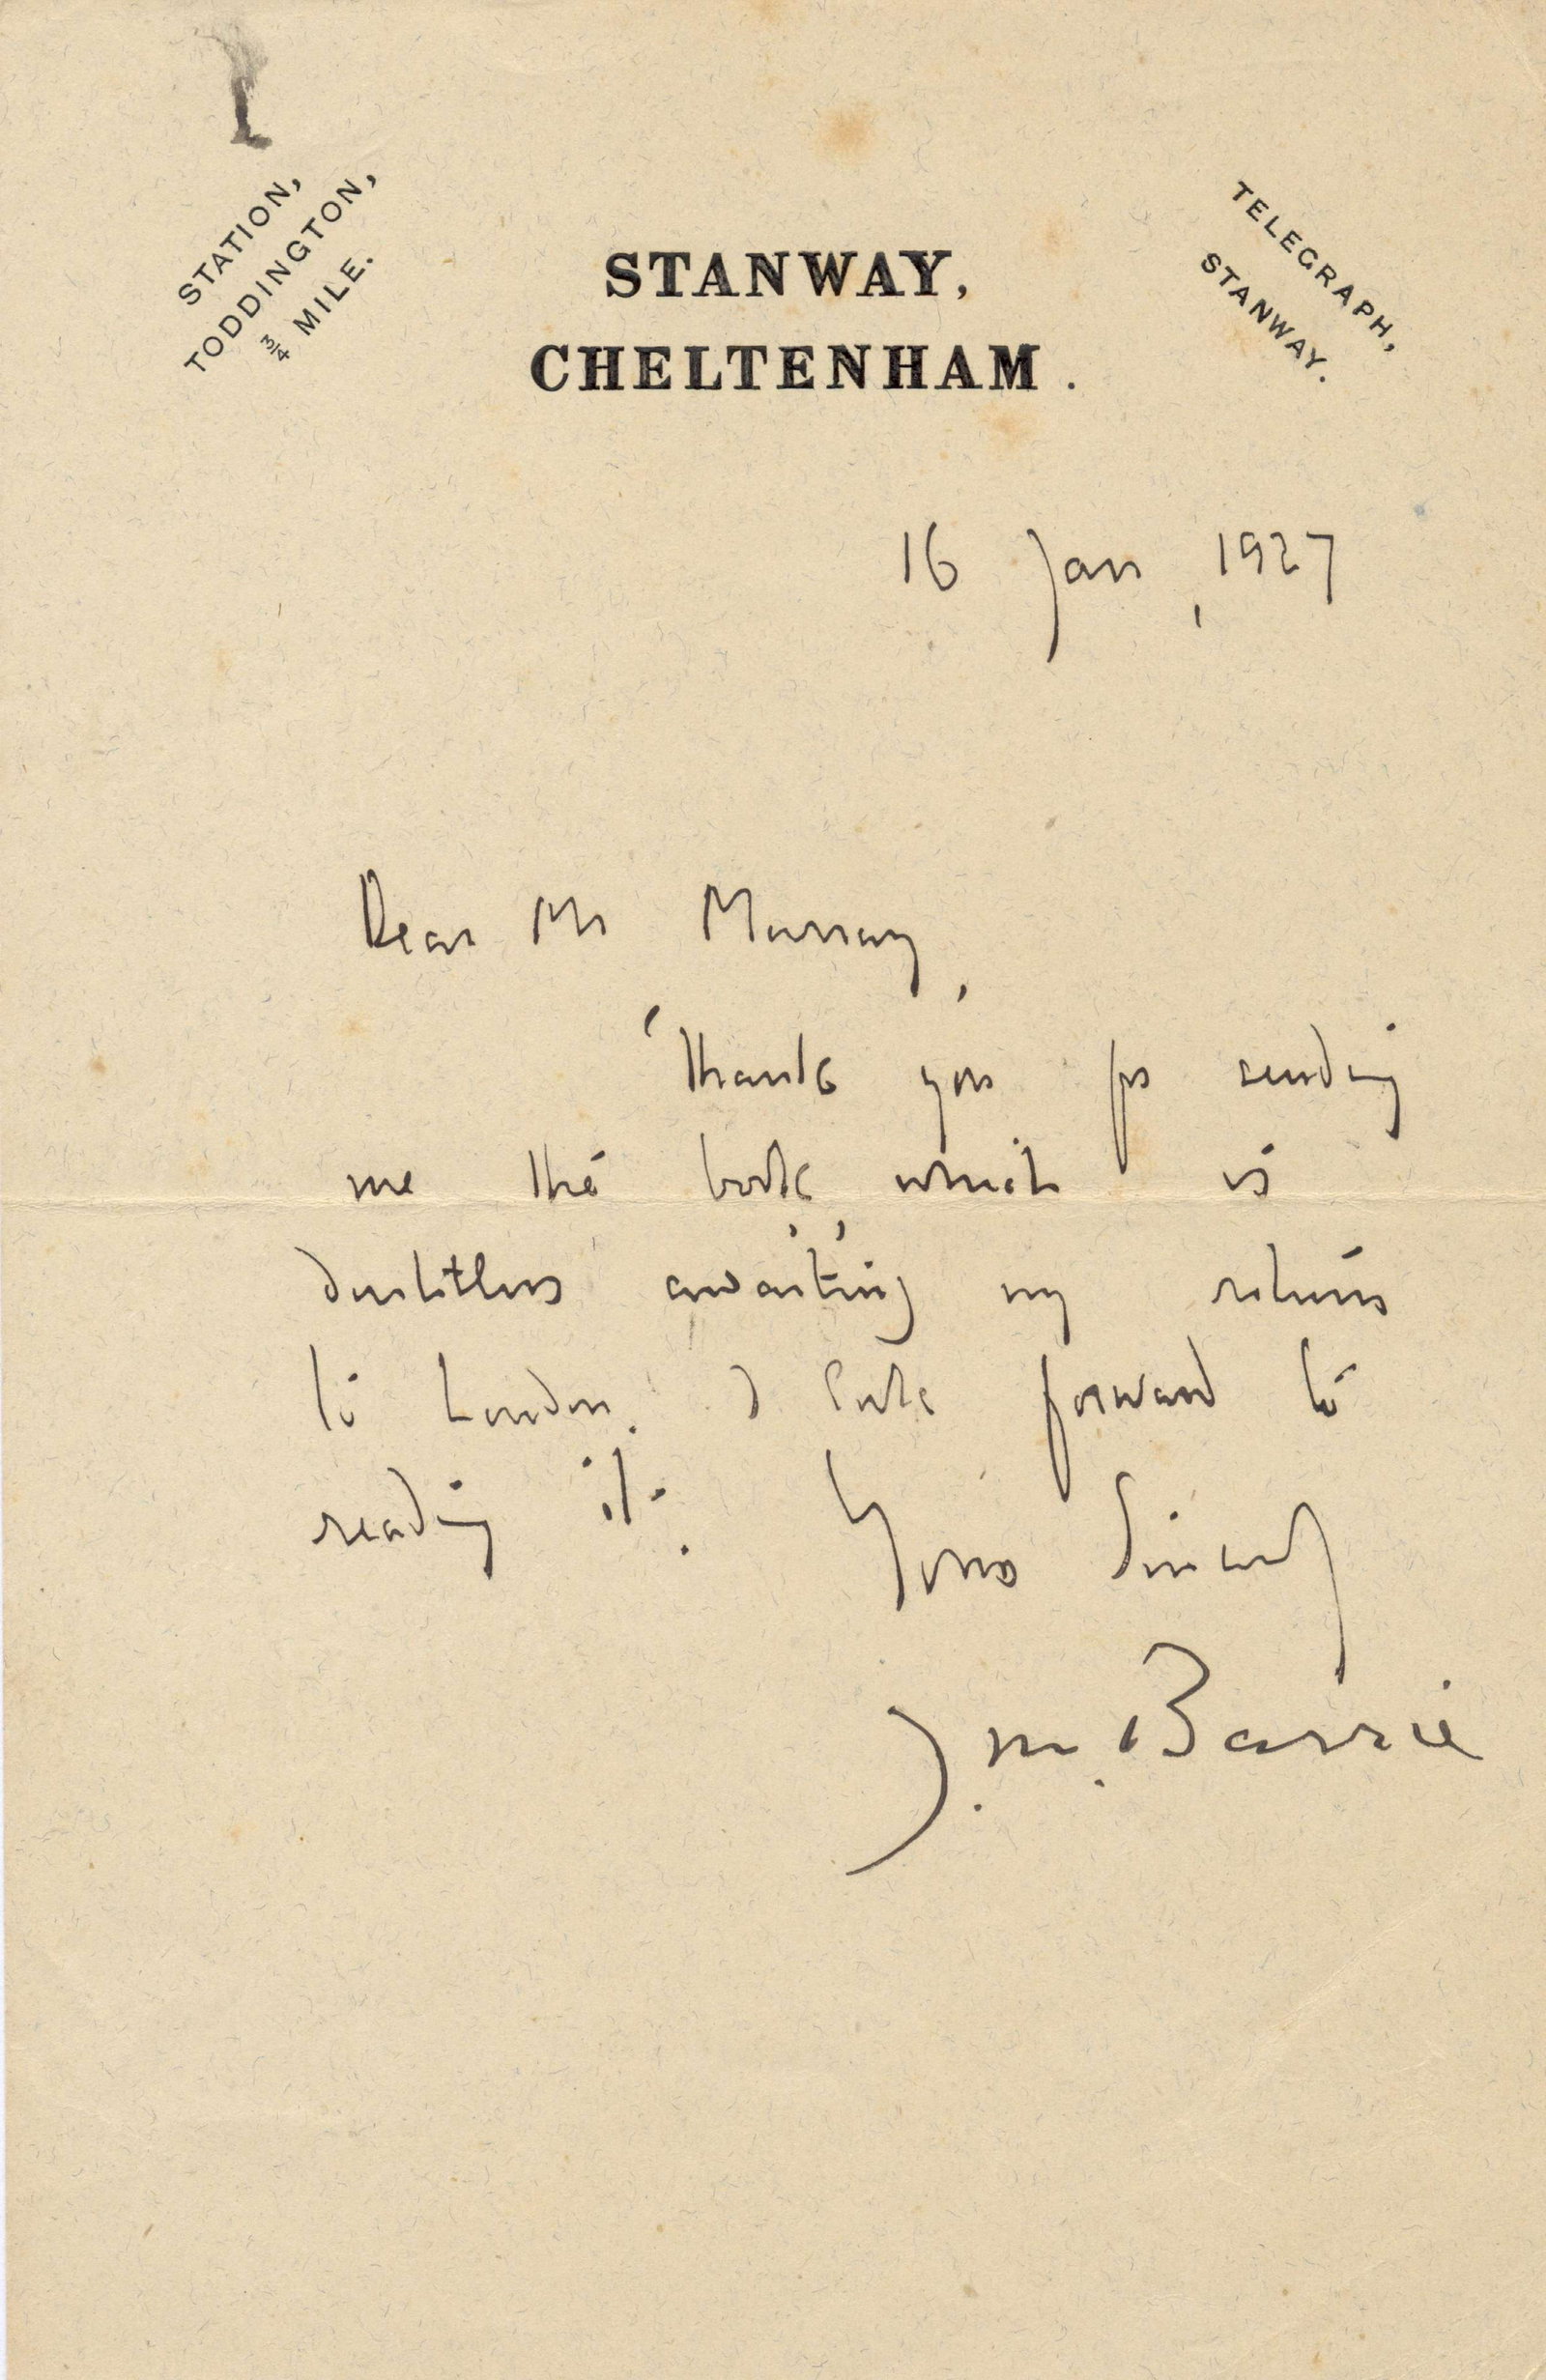 STATION,
TODDINGTON,
¾ MILE.
STANWAY,
CHELTENHAM.
TELEGRAPH,
STANWAY.
16 Jan, 1927
Dear Mr Murray,
Thank you for sending
me the book, which is
doubtless awaiting my return
to London. I look forward to
reading it.
Yours Sincerely
J. M. Barrie